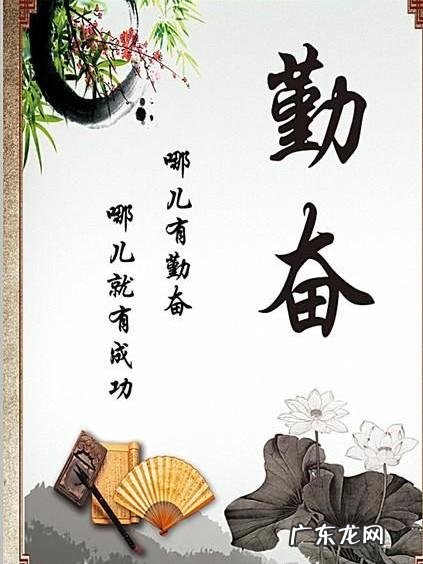 勤奋
哪儿有勤奋
哪儿就有成功
广东龙网